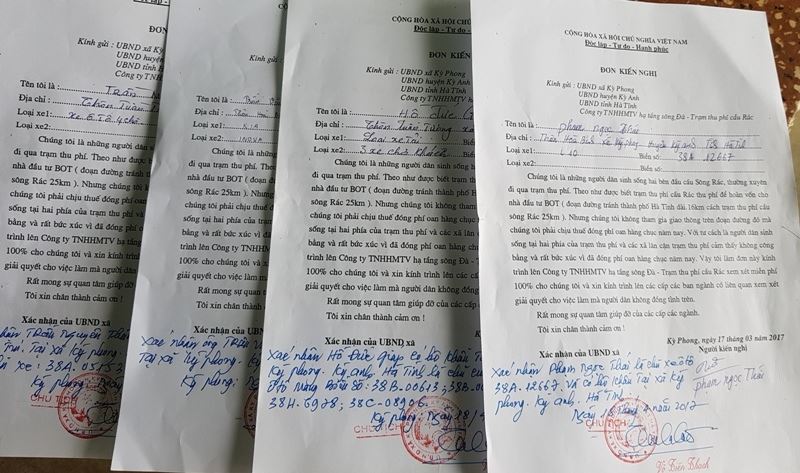 CỘNG
Độc lập - T
ĐƠN
Kính gửi : UBND xã
UBND huyện
UBND tỉnh
Công ty TNHH
Tên tôi là : Trần
Địa chỉ : Thôn Tuần
Loại xe1:
Loại xe2:
Chúng tôi là những người dân
đi qua trạm thu phí. Theo như được
nhà đầu tư BOT ( đoạn đường tránh
sông Rác 25km ). Nhưng chúng tôi k
chúng tôi phải chịu thuế đóng phí oan
sống tại hai phía của trạm thu phí và
bằng và rất bức xúc vì đã đóng phí o
trình lên Công ty TNHHMTV hạ tầng
100% cho chúng tôi và xin kính trìn
giải quyết cho việc làm mà người dân
Rất mong sự quan tâm giúp đỡ
Tôi xin chân thành cảm ơn !
Xác nhận của UBND xã
CHỦ TỊCH
Kính gửi
Tên tôi là :
Địa chỉ :
Loại xe1: KIA
Loại xe2: INOVA
Chúng tôi là những
đi qua trạm thu phí. Theo
nhà đầu tư BOT ( đoạn đ
sông Rác 25km ). Nhưng
chúng tôi phải chịu thuế
sống tại hai phía của trạm
bằng và rất bức xúc vì đã
trình lên Công ty TNHHM
100% cho chúng tôi và x
giải quyết cho việc làm mà
Rất mong sự quan
Tôi xin chân thành
Xác nhận của UBND
Xác nhận ông Trần
Tại xã Kỳ phong.
CHỦ
CỘNG HÒA XÃ HỘI CHỦ
Độc lập - Tự do -
ĐƠN KIẾN
Kính gửi : UBND xã Kỳ Phong
UBND huyện Kỳ Anh
UBND tỉnh Hà Tĩnh
Công ty TNHHMTV
Tên tôi là : Hồ Đức
Địa chỉ : Thôn Tuần Tượng xã
Loại xe1: Loại xe Tải Biển
Loại xe2: 3 xe chở khách Biển
Chúng tôi là những người dân sinh
đi qua trạm thu phí. Theo như được biết
nhà đầu tư BOT ( đoạn đường tránh thành phố H
sông Rác 25km ). Nhưng chúng tôi không tham
chúng tôi phải chịu thuế đóng phí oan hàng chục
sống tại hai phía của trạm thu phí và các xã lân
bằng và rất bức xúc vì đã đóng phí oan hàng chục
trình lên Công ty TNHHMTV hạ tầng sông Đà -
100% cho chúng tôi và xin kính trình lên các cấp
giải quyết cho việc làm mà người dân không đồng
Rất mong sự quan tâm giúp đỡ của các cấp
Tôi xin chân thành cảm ơn !
Xác nhận của UBND xã
Xác nhận Hồ Đức
Kỳ phong. Kỳ anh. Hà Tĩnh là chủ
38B-00613;
38H-6978; 38C-08906.
Kỳ phong, Ngày 18/4
CHỦ TỊCH
CỘNG HÒA XÃ HỘI CHỦ NGHĨA VIỆT NAM
Độc lập - Tự do - Hạnh phúc
ĐƠN KIẾN NGHỊ
Kính gửi : UBND xã Kỳ Phong
UBND huyện Kỳ Anh
UBND tỉnh Hà Tĩnh
Công ty TNHHMTV hạ tầng sông Đà - Trạm thu phí cầu Rác
Tên tôi là : phạm ngọc Thái
Địa chỉ : Thôn Hòa Bình xã Kỳ phong huyện Kỳ anh Tỉnh Hà Tĩnh
Loại xe1: Biển số: 38A 12667
Loại xe2: Biển số:
Chúng tôi là những người dân sinh sống hai bên đầu cầu Sông Rác, thường xuyên
đi qua trạm thu phí. Theo như được biết trạm thu phí cầu Rác thu phí để hoàn vốn cho
nhà đầu tư BOT ( đoạn đường tránh thành phố Hà Tĩnh dài.16km cách trạm thu phí cầu
sông Rác 25km ). Nhưng chúng tôi không tham gia giao thông trên đoạn đường đó mà
chúng tôi phải chịu thuế đóng phí oan hàng chục năm nay. Với tư cách là người dân sinh
sống tại hai phía của trạm thu phí và các xã lân cận trạm thu phí cảm thấy không công
bằng và rất bức xúc vì đã đóng phí oan hàng chục năm nay. Vậy tôi làm đơn này kính
trình lên Công ty TNHHMTV hạ tầng sông Đà - Trạm thu phí cầu Rác xem xét miễn phí
100% cho chúng tôi và xin kính trình lên các cấp các ban ngành có liên quan xem xét
giải quyết cho việc làm mà người dân không đồng tình trên.
Rất mong sự quan tâm giúp đỡ của các cấp các ngành.
Tôi xin chân thành cảm ơn !
Kỳ Phong, ngày 17 tháng 03 năm 2017
Xác nhận của UBND xã Người kiến nghị
Xác nhận Phạm Ngọc Thái là chủ xe ôtô
38A-12667. Và có hộ khẩu Tại xã Kỳ
phong. Kỳ anh. Hà Tĩnh.
phạm ngọc Thái
Ngày 18 tháng 4 năm 2017
CHỦ TỊCH
Võ Tiến Thach